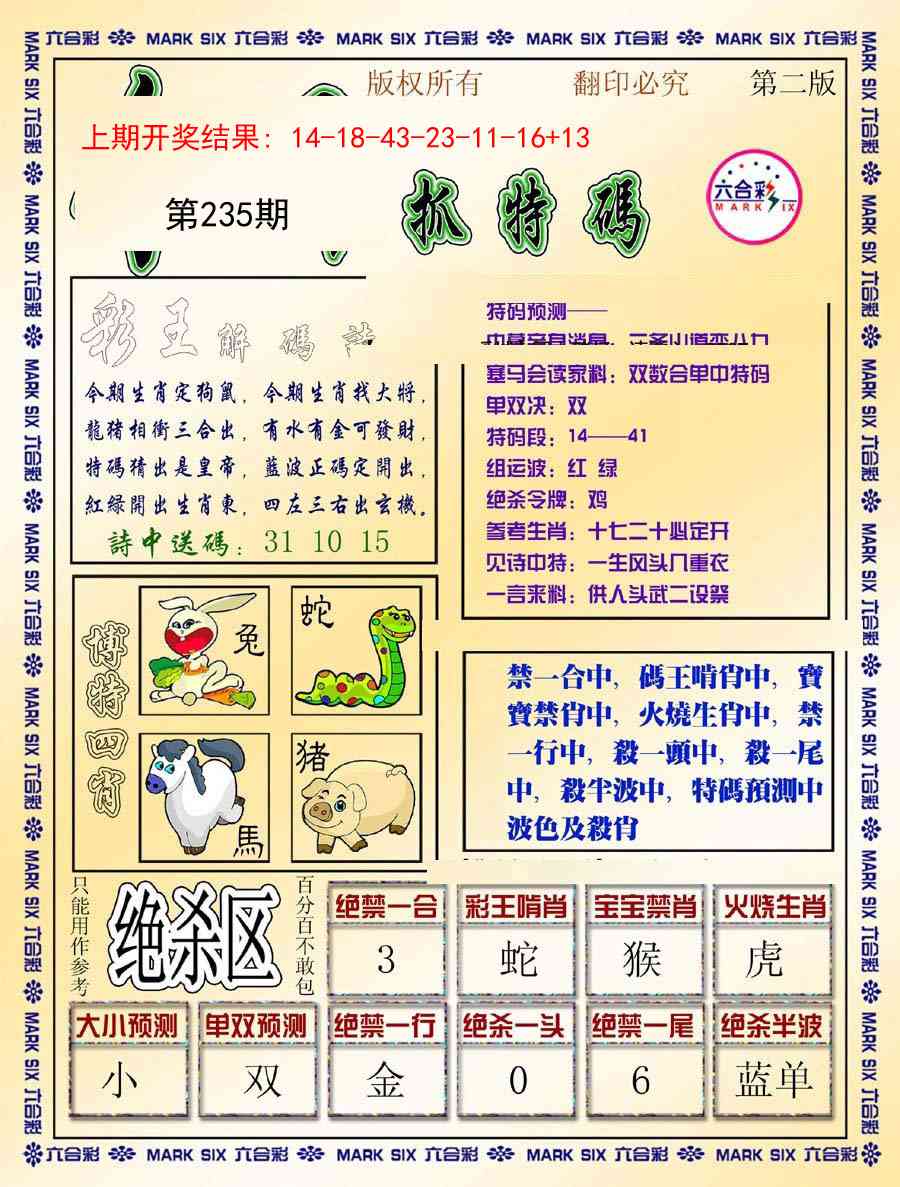 六合彩 MARK SIX 六合彩 MARK SIX 六合彩 MARK SIX 六合彩 MARK SIX 六合彩
版权所有 翻印必究 第二版
上期开奖结果: 14-18-43-23-11-16+13
第235期
抓特碼
六合彩
MARK SIX
彩王解碼詩
今期生肖定狗鼠，今期生肖找大將，
龍猪相衝三合出，有水有金可發財，
特碼猜出是皇帝，藍波正碼定開出，
紅緑開出生肖東，四左三右出玄機。
詩中送碼: 31 10 15
特码预测——
塞马会读家料：双数合单中特码
单双决：双
特码段：14——41
组运波：红 绿
绝杀令牌：鸡
参考生肖：十七二十必定开
见诗中特：一生风头八重衣
一言来料：供人头武二设祭
博特四肖
兔
蛇
馬
猪
禁一合中，碼王啃肖中，寶
寶禁肖中，火燒生肖中，禁
一行中，殺一頭中，殺一尾
中，殺半波中，特碼預測中
波色及殺肖
只能用作参考
绝杀区
百分百不敢包
绝禁一合 彩王啃肖 宝宝禁肖 火烧生肖
3 蛇 猴 虎
大小预测 单双预测 绝禁一行 绝杀一头 绝禁一尾 绝杀半波
小 双 金 0 6 蓝单
六合彩 MARK SIX 六合彩 MARK SIX 六合彩 MARK SIX 六合彩 MARK SIX 六合彩